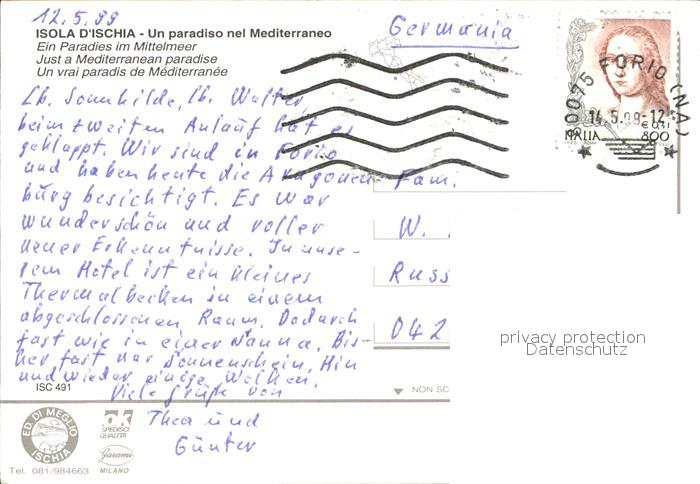 12.5.99
ISOLA D'ISCHIA - Un paradiso nel Mediterraneo
Ein Paradies im Mittelmeer
Just a Mediterranean paradise
Un vrai paradis de Méditerranée
Lb. Sonnhilde, lb. Walter,
beim zweiten Anlauf hat es
geklappt. Wir sind in Forio
und haben heute die Aragonen-
burg besichtigt. Es war
wunderschön und voller
neuer Erkenntnisse. In unse-
rem Hotel ist ein kleines
Thermalbecken in einem
abgeschlossenen Raum. Dadurch
fast wie in einer Sauna. Bis-
her fast nur Sonnenschein. Hin
und wieder einige Wolken.
Viele Grüße von
Thea und
Günter
ISC 491
ED. DI MEGLIO
ISCHIA
Tel. 081/984663
ok
SPEDISCI
QUALITÀ
Garami
MILANO
Germania
80075 FORIO (NA)
14.5.99-12
ITALIA 800
Fam.
W.
Russ
042
NON SC
privacy protection
Datenschutz